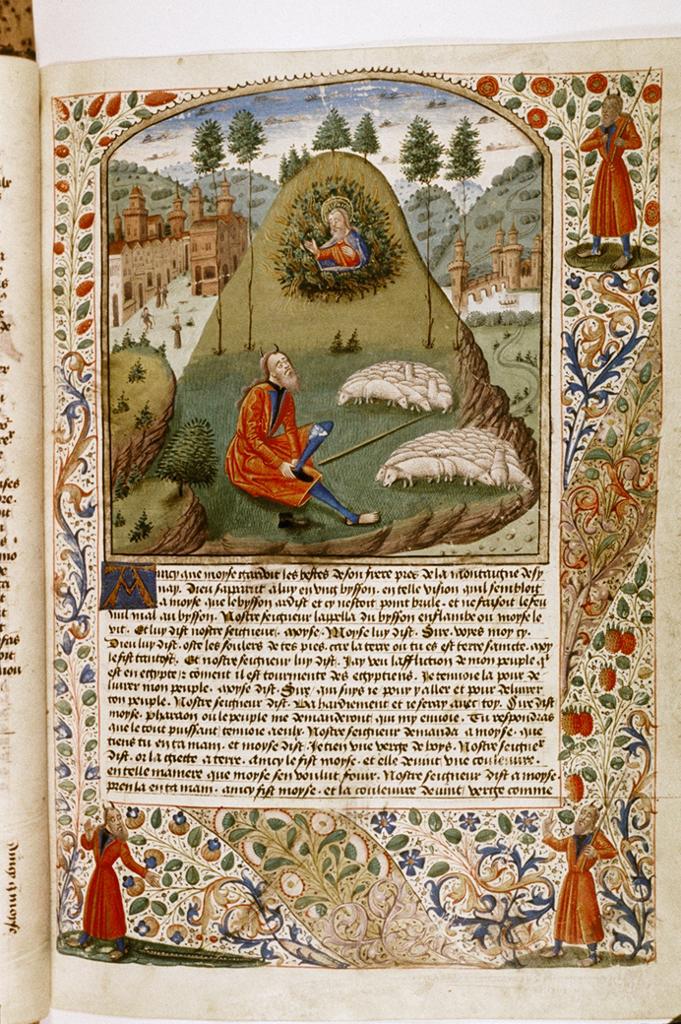 Aincy que moyse gardoit les bestes de son frere pres de la montaigne de sy
nay. Dieu saparut a luy en vng bysson. en telle vision quil sembloit
a moyse que le bysson ardist et cy nestoit point brule. et ne faisoit le feu
nul mal au bysson. Nostre seigneur lappella du bysson enflambe ou moyse le
vit. Et luy dist nostre seigneur. moyse. Moyse luy dist. Sire. voyes moy cy.
Dieu luy dist. oste les soulers de tes pies. car la terre ou tu es est terre saincte. moy
le fist tantost. Et nostre seigneur luy dist. Jay veu laffliction de mon peuple q̄
est en egypte. coment il est tourmente des egyptiens. Je tenuoie la pour de
liurer mon peuple. moyse dist. Sire. qui suys ie pour y aller et pour deliurer
ton peuple. Nostre seigneur dist. Va hardiement et ie seray auec toy. Sire dist
moyse. pharaon ou le peuple me demanderont qui my enuoie. Tu respondras
que le tout puissant tenuoie a eulx. Nostre seigneur demanda a moyse. que
tiens tu en ta main. et moyse dist. Je tien vne verge de boys. Nostre seigne
dist. or la giecte a terre. Aincy le fist moyse. et elle deuint vne couleuure.
en telle maniere que moyse sen voulut fouir. Nostre seigneur dist a moyse
pren la en ta main. aincy fist moyse. et la couleuure deuint verge comme